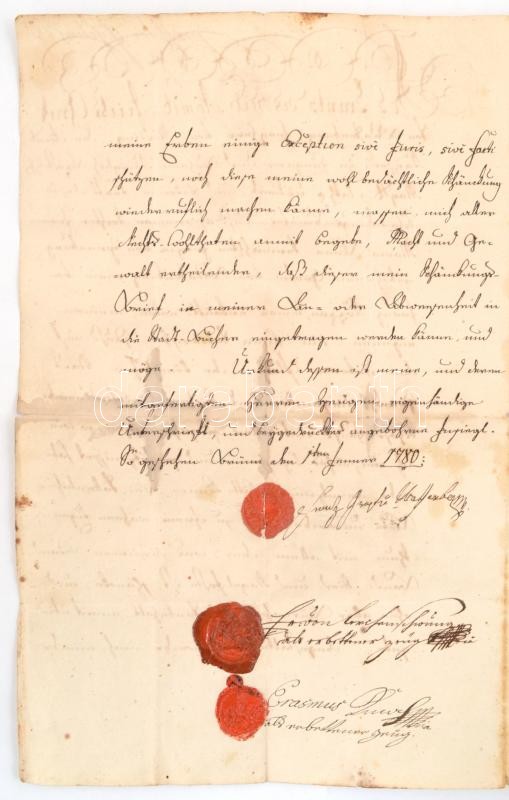 meine Erben einige Exception sive Juris, sive facti
schützen, noch diese meine wohl bedächtliche Schänckung
wiederruflich machen könne, massen mich aller
Rechts-Wohlthaten anmit begebe, Macht und Ge-
walt ertheilender, daß dieser mein Schänckungs-
Brief in meiner Bey- oder Abwesenheit in
die Stadt-Bücher eingetragen werden könne, und
möge. Urkund dessen ist meine, und deren
mitgefertigten Herren Zeugen eigenhändige
Unterschrifft, und beygedruckte angebohrne Insiegl.
So geschehen Brünn den 1ten Jenner 1780:
darabanth
als erbettener Zeug
Erasmus
als erbettener Zeug.